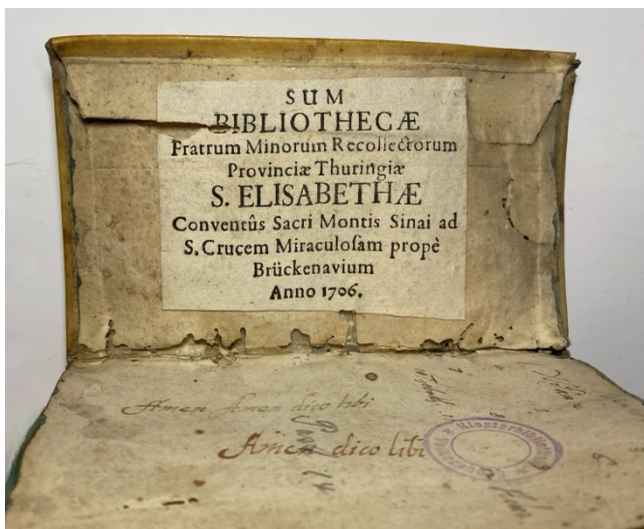 SUM
BIBLIOTHECÆ
Fratrum Minorum Recollectorum
Provinciæ Thuringiæ
S. ELISABETHÆ
Conventûs Sacri Montis Sinai ad
S. Crucem Miraculoſam propè
Brückenavium
Anno 1706.
Amen Amen dico tibi
Amen dico tibi
Klosterbibliothek